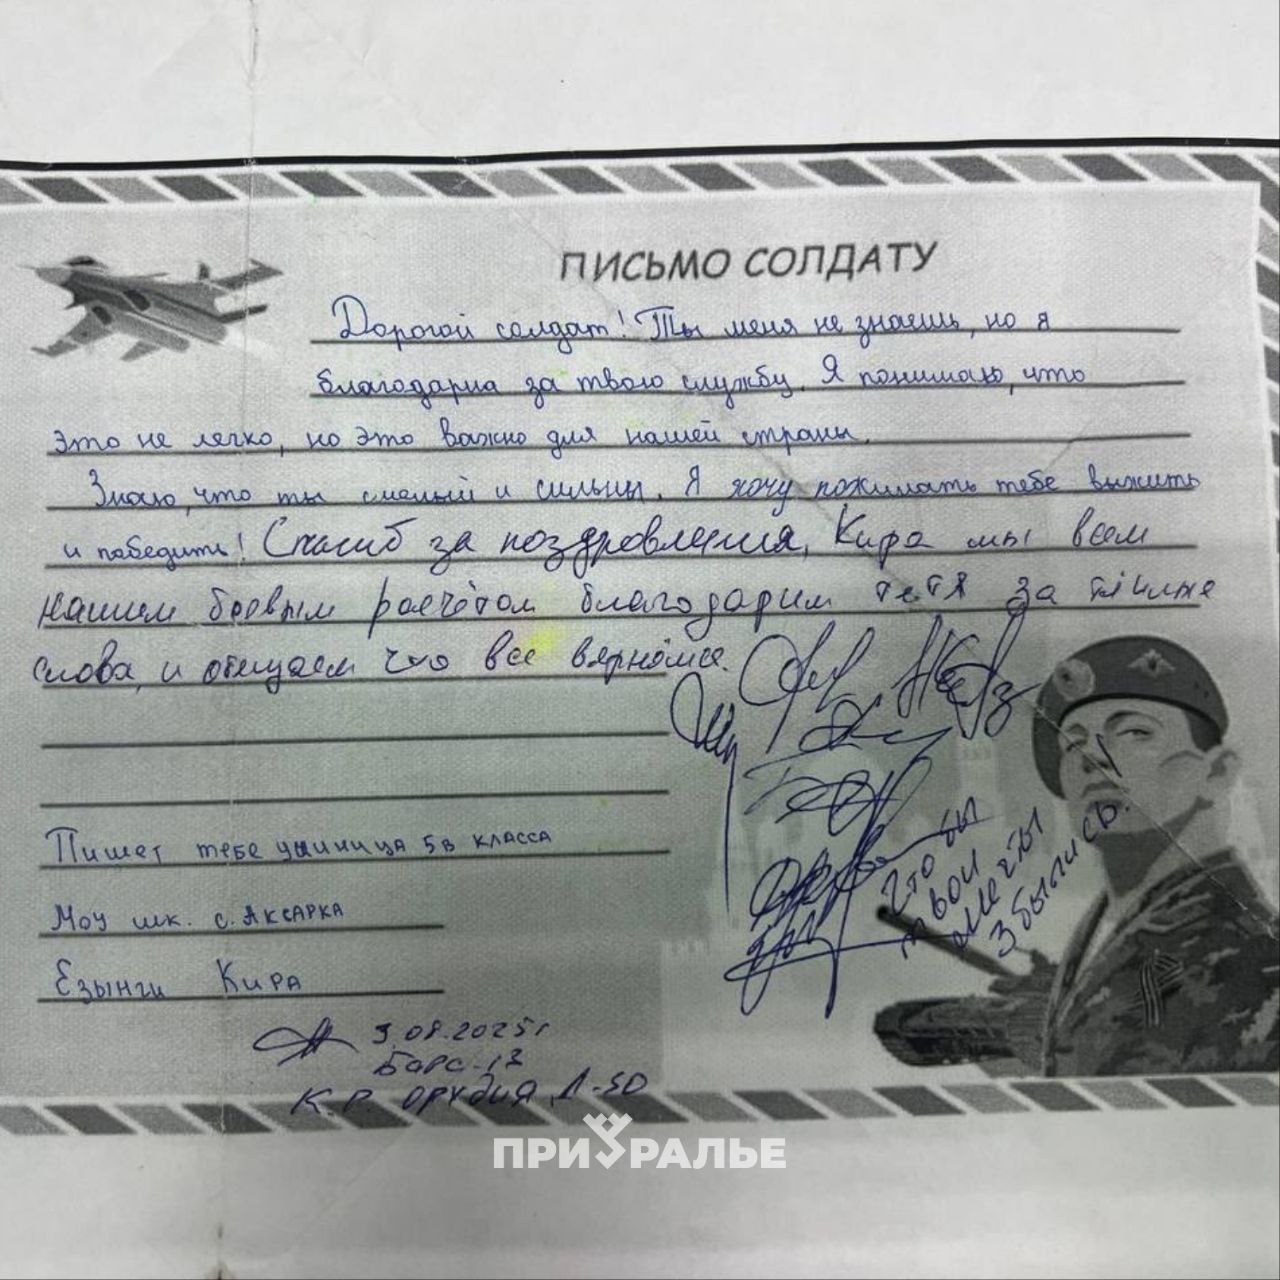 ПИСЬМО СОЛДАТУ
Дорогой солдат! Ты меня не знаешь, но я
благодарна за твою службу. Я понимаю, что
это не легко, но это важно для нашей страны.
Знаю, что ты смелый и сильны. Я хочу пожилать тебе выжить
и победить! Спасиб за поздровления, Кира мы всем
нашим боевым расчётом благодарим тебя за тёплые
слова, и обещаем что все вернёмся.
Что бы
твои
мечты
збылись.
Пишет тебе учиница 5в класса
Моу шк. с. Аксарка
Езынги Кира
3.08.2025г
Барс-13
К.Р. орудия Д-30
ПРИУРАЛЬЕ